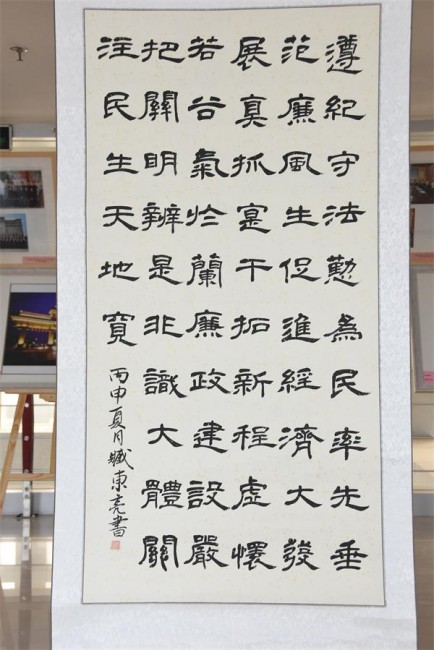 遵紀守法勤為民率先垂
范廉風生促進經濟大發
展真抓寔干拓新程虛懷
若谷氣於蘭廉政建設嚴
把關明辨是非識大體關
注民生天地寬
丙申夏月臧東亮書